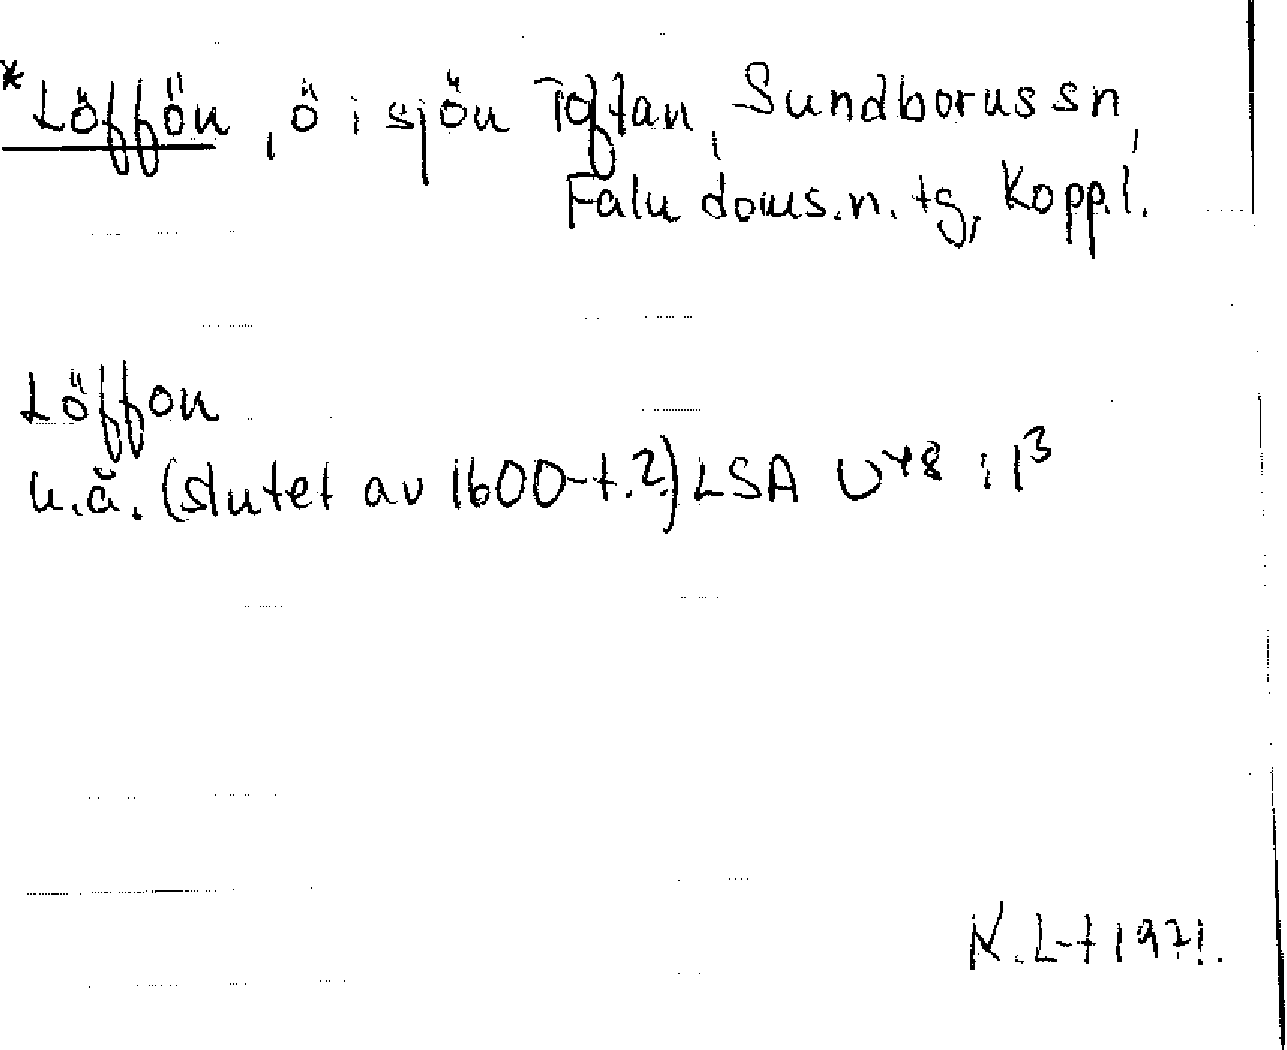 *Löffön, ö i sjön Toftan, Sundborns sn,
Falu doms.n. tg, Kopp.l.
Löffon
u.å. (slutet av 1600-t.?) LSA U48 : 1³
K. L-t 1971.